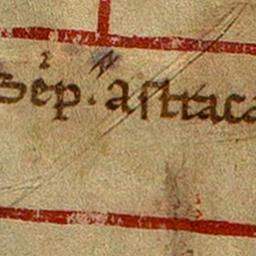 Sep. astraca